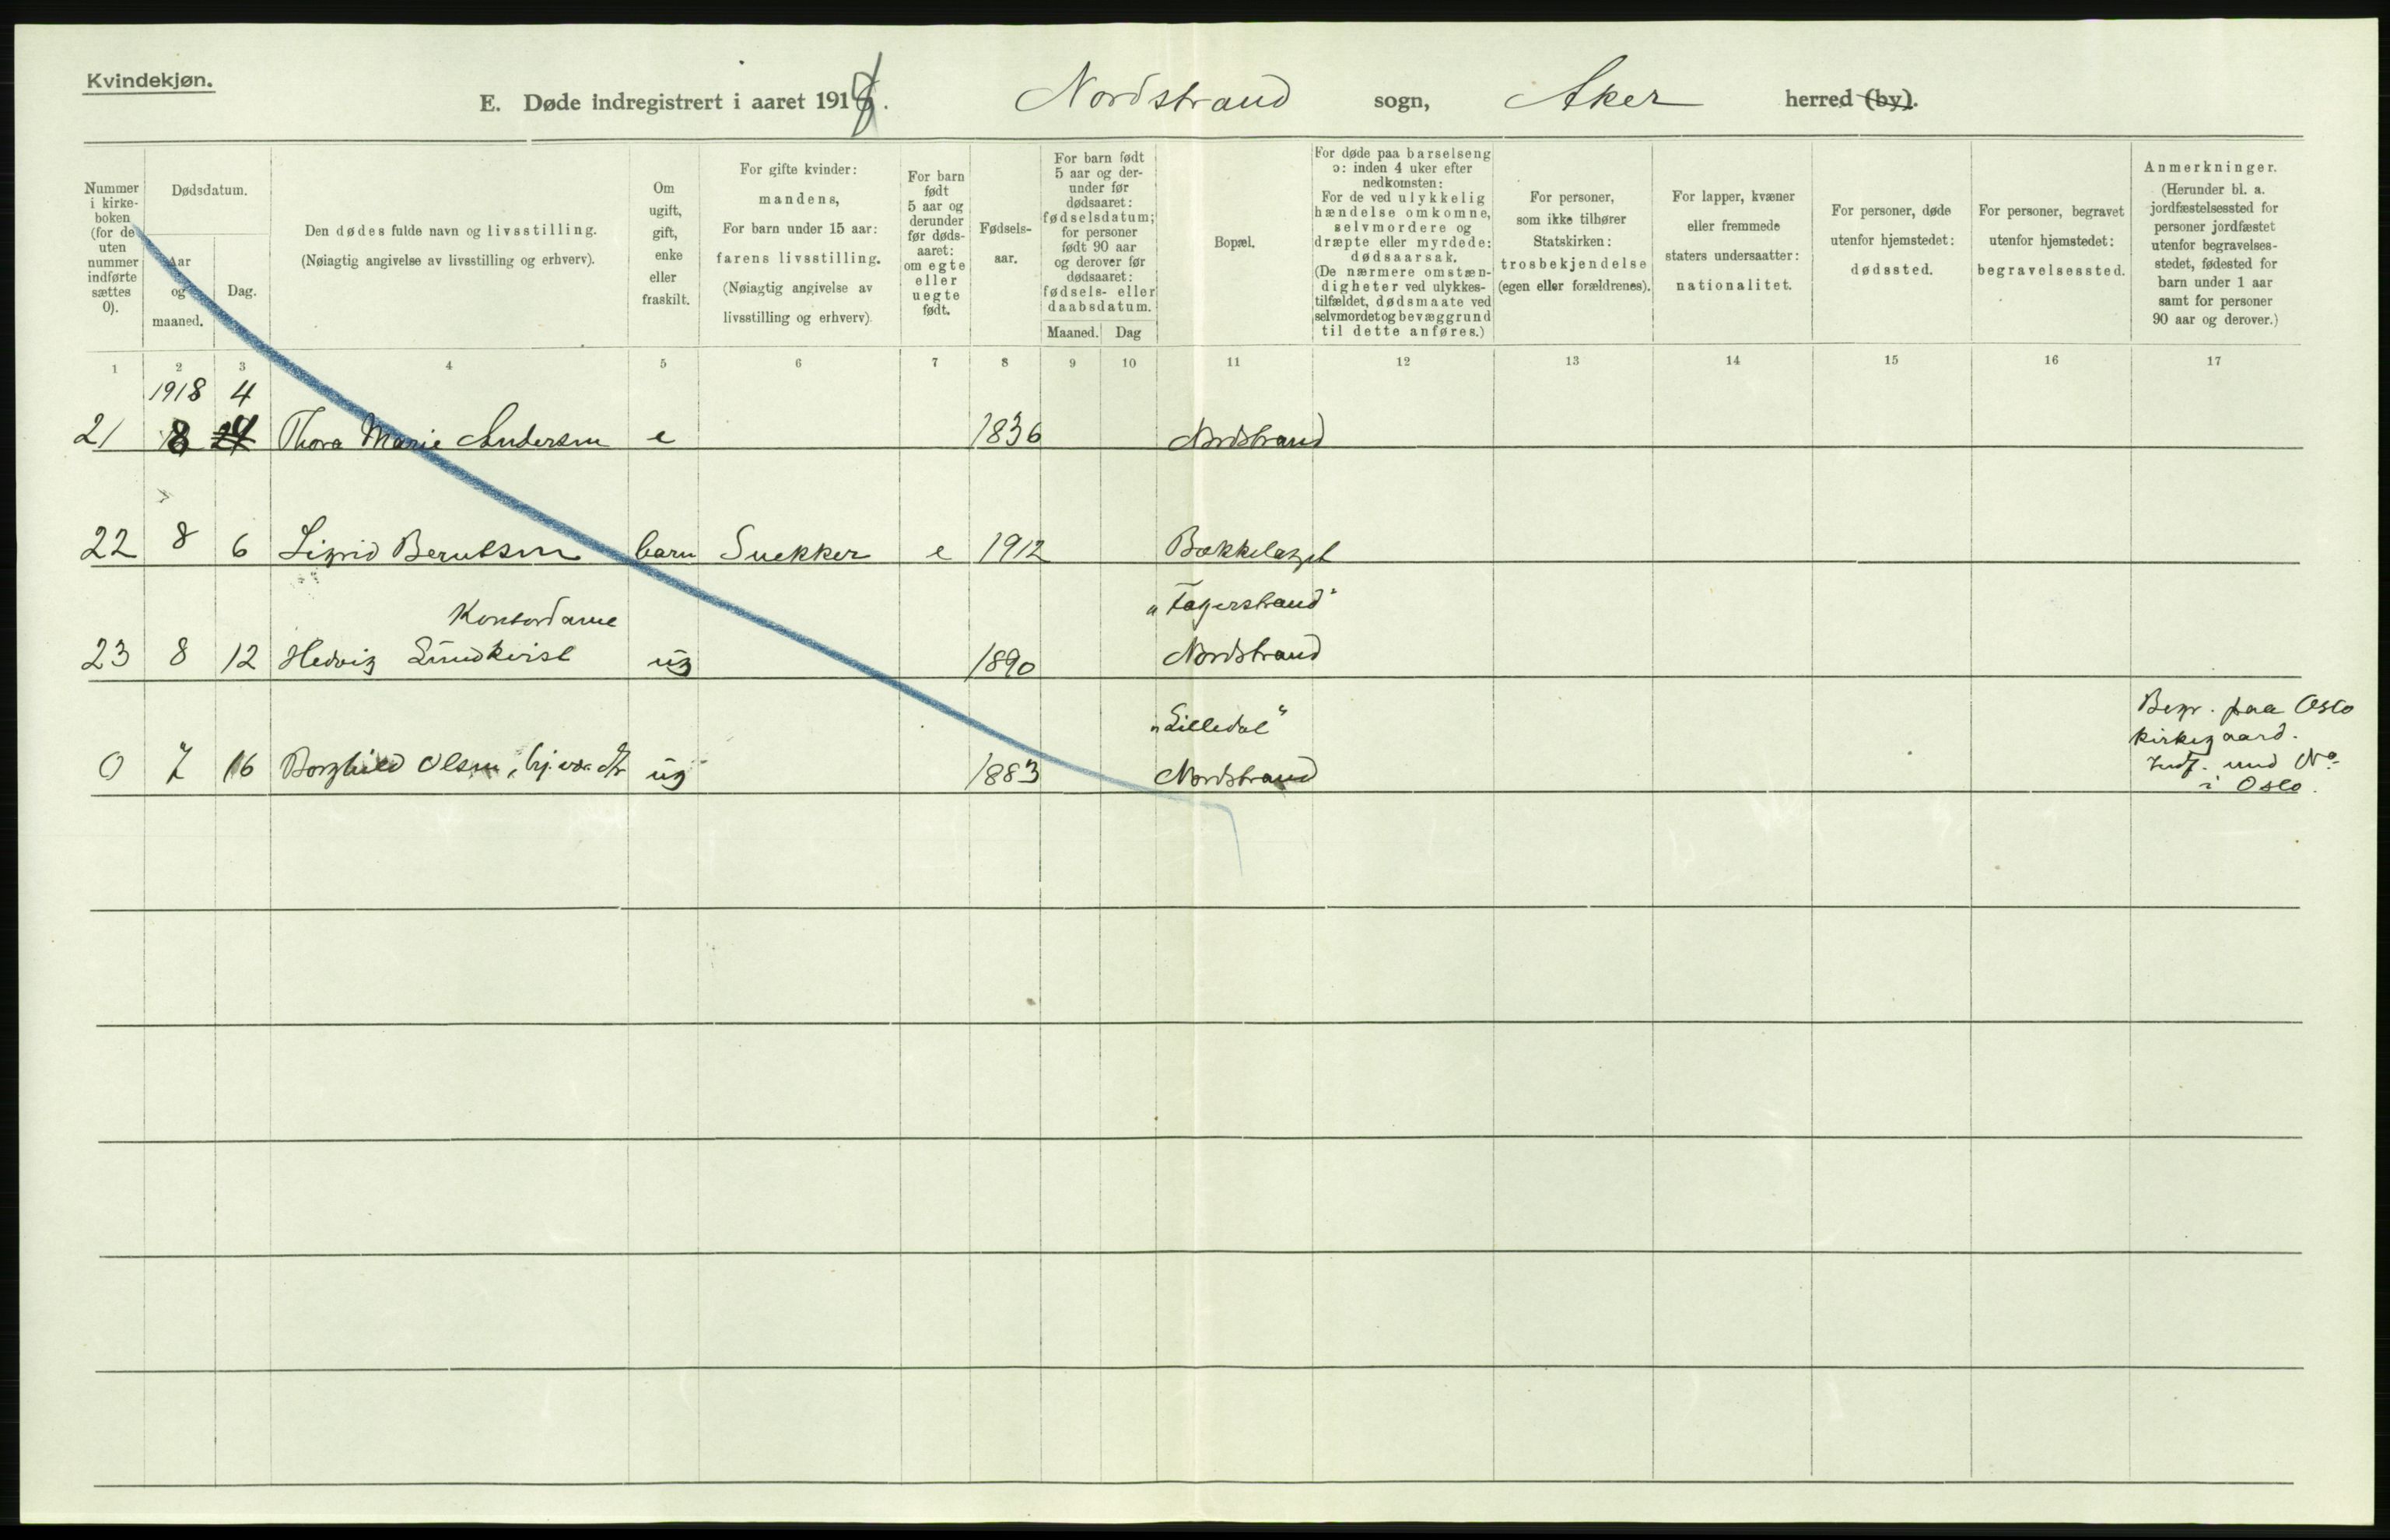 Kvindekjøn.
E. Døde indregistrert i aaret 1918. Nordstrand sogn, Aker herred (by).
Nummer i kirke-boken (for de uten nummer indførte sættes 0).
Dødsdatum.
Aar og maaned.
Dag.
Den dødes fulde navn og livsstilling.
(Nøiagtig angivelse av livsstilling og erhverv).
Om ugift, gift, enke eller fraskilt.
For gifte kvinder: mandens,
For barn under 15 aar: farens livsstilling.
(Nøiagtig angivelse av livsstilling og erhverv)
For barn født 5 aar og derunder før døds-aaret: om egte eller uegte født.
Fødsels-aar.
For barn født 5 aar og der-under før dødsaaret: fødselsdatum; for personer født 90 aar og derover før dødsaaret: fødsels- eller daabsdatum.
Maaned. Dag
Bopæl.
For døde paa barselseng ɔ: inden 4 uker efter nedkomsten:
For de ved ulykkelig hændelse omkomne, selvmordere og dræpte eller myrdede: dødsaarsak.
(De nærmere omstæn-digheter ved ulykkes-tilfældet, dødsmaate ved selvmordet og bevæggrund til dette anføres.)
For personer, som ikke tilhører Statskirken: trosbekjendelse (egen eller forældrenes).
For lapper, kvæner eller fremmede staters undersaatter: nationalitet.
For personer, døde utenfor hjemstedet: dødssted.
For personer, begravet utenfor hjemstedet: begravelsessted.
Anmerkninger.
(Herunder bl. a. jordfæstelsessted for personer jordfæstet utenfor begravelses-stedet, fødested for barn under 1 aar samt for personer 90 aar og derover.)
1 2 3 4 5 6 7 8 9 10 11 12 13 14 15 16 17
1918 4
21 8 24 Thora Marie Andersen e 1836 Nordstrand
22 8 6 Sigrid Berntsen barn Snekker e 1912 Bækkelaget
Kontordame "Fagerstrand"
23 8 12 Hedvig Lundkvist ug 1890 Nordstrand
"Lilledal"
0 7 16 Borghild Olsen, ug 1883 Nordstrand
Begr. paa Oslo
kirkegaard.
Indf. med No
i Oslo.